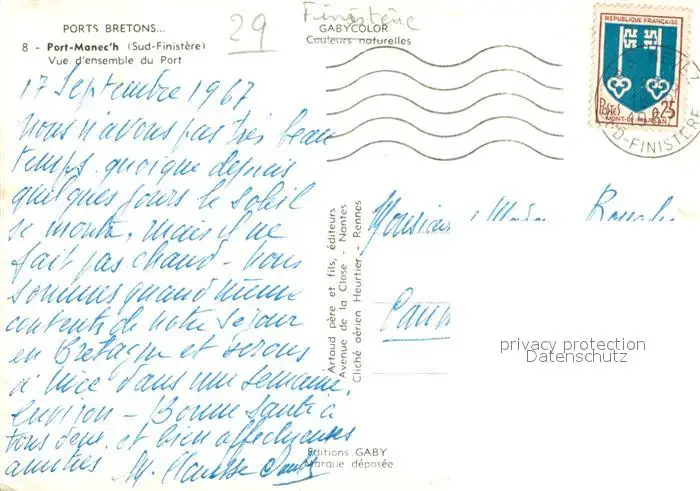 PORTS BRETONS...
8 - Port-Manec'h (Sud-Finistère)
Vue d'ensemble du Port
29
Finistère
GABYCOLOR
Couleurs naturelles
REPUBLIQUE FRANÇAISE
POSTES 0,25
MONT-DE-MARSAN
SUD-FINISTERE
17 Septembre 1967
Nous n'avons pas très beau
temps quoique depuis
quelques jours le soleil
se montre, mais il ne
fait pas chaud - Nous
sommes quand même
contents de notre séjour
en Bretagne et serons
à Nice dans une semaine
environ - Bonne santé à
tous deux et bien affectueuses
amitiés M.
Artaud père et fils, éditeurs
Avenue de la Close - Nantes
Cliché aérien Heurtier - Rennes
Monsieur
privacy protection
Datenschutz
Editions GABY
Marque déposée